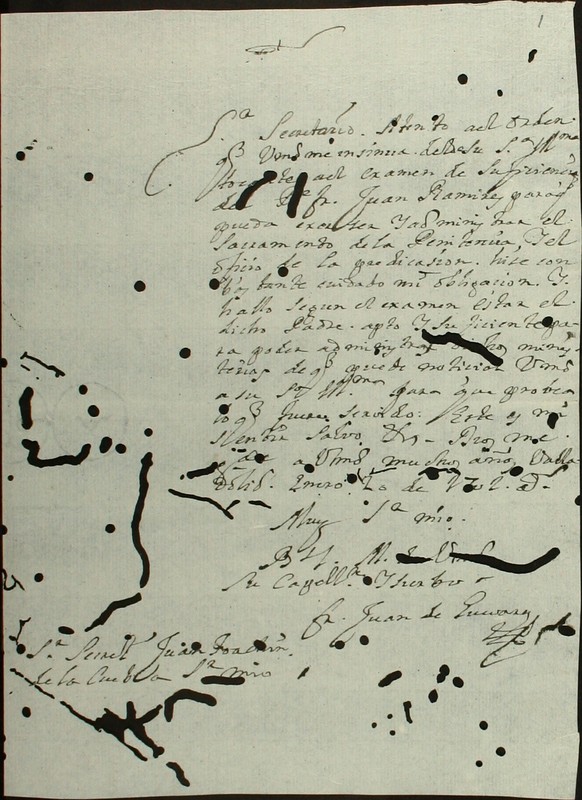 1
Sr Secretario. Atento ael orden
q Vmd me insinua de su Sa Illma
tocante ael examen de suficiencia
del Pe fr. Juan Ramires para q
pueda exerser Y administrar el
Sacramento de la Penitencia, Y el
ofisio de la predicasion. hise con
bastante cuidado mi obligacion. Y
hallo segun el examen estar el
dicho Padre. apto Y suficiente pa
ra poder administrar dichos minis
terios de q puede noticiar Vmd
a su Sa Illma para que provea
lo q fuere servido: Este es mi
sentir salvo &. Dios me
gde a Vmd muchos años Valla
dolid. Enero. de
Muy Sr mio.
B L M. de Vmd
Su Capelln Y siervo
fr. Juan de Guevara
Sr Secreto Juan Joachin
de la Cuebla Sr mio